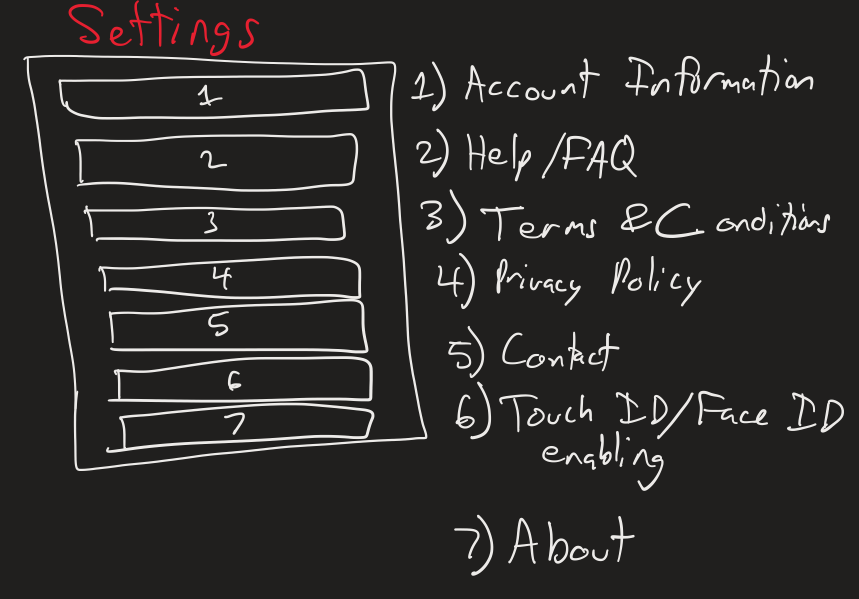 Settings
1
2
3
4
5
6
7
1) Account Information
2) Help/FAQ
3) Terms & Conditions
4) Privacy Policy
5) Contact
6) Touch ID/Face ID
enabling
7) About